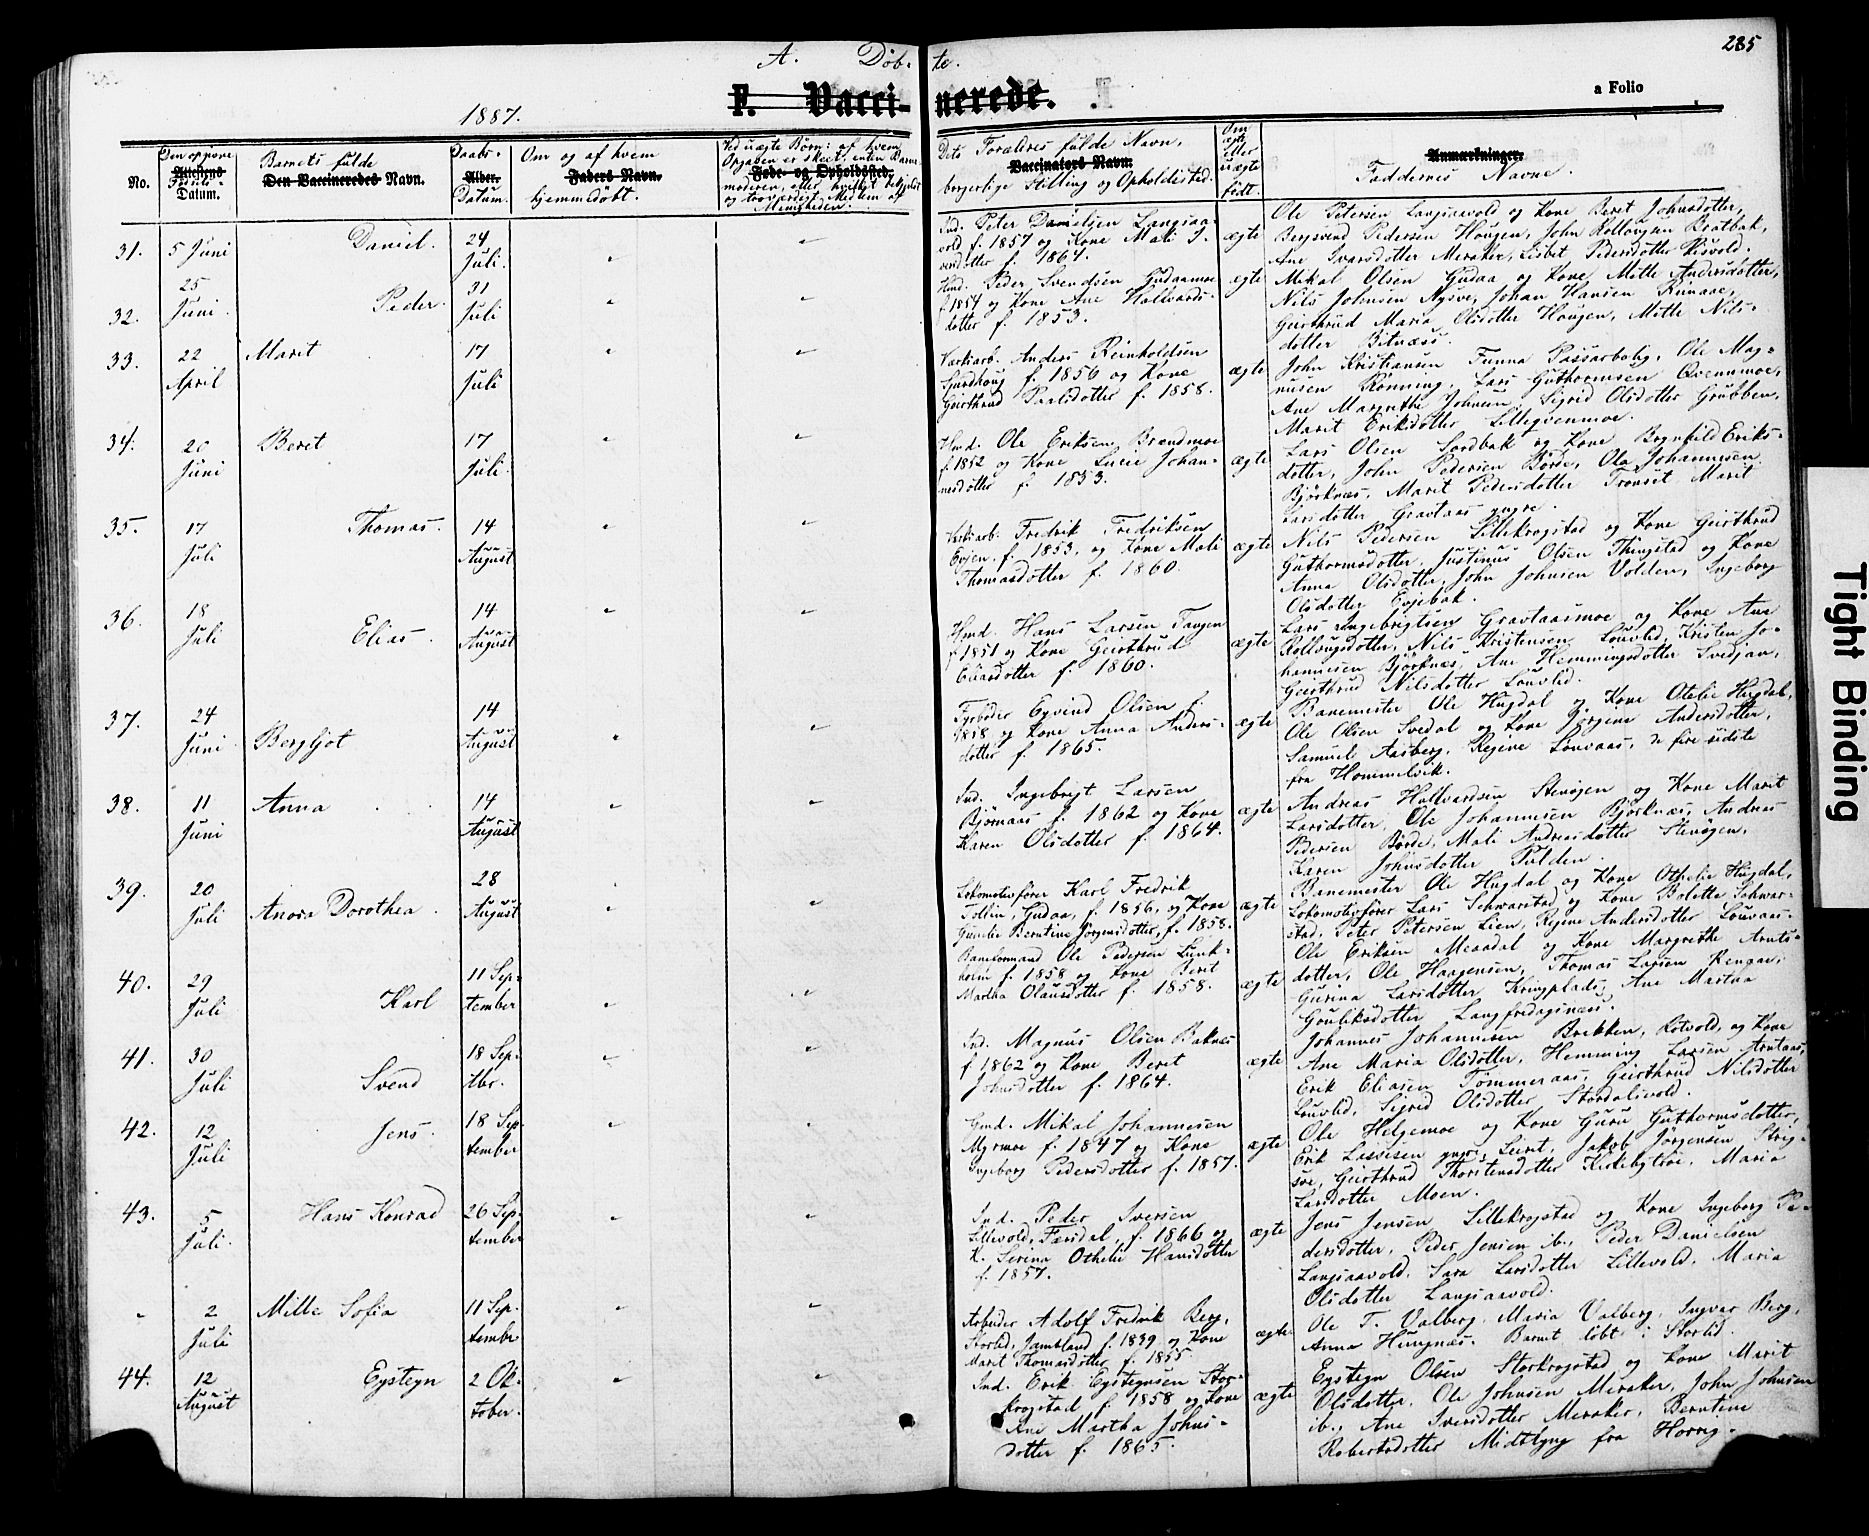 A. Døb- te.
235
F. Vacci- nerede.
a Folio
1887.
No.
Den opgivne
Attestens
Fødsels-
Datum.
Barnets fulde
Den Vaccineredes Navn.
Daabs-
Alder.
Datum.
Om og af hvem
Faders Navn.
hjemmedøbt.
Ved uægte Børn: af hvem
Opgaven er skeet, enten Barne-
Føde- og Opholdssted.
moderen, eller hvilket bekjendt
og troværdigt Medlem af
Menigheden.
Dets Forældres fulde Navn,
Vaccinators Navn.
borgerlige Stilling og Opholdssted.
Om
ægte
eller
uægte
født.
Anmærkninger.
Faddernes Navne.
31.
5 Juni
Daniel.
24
Juli.
Ind. Peter Danielsen Langsaa-
vold f. 1857 og Kone Mali I-
versdotter f. 1864.
ægte
Ole Petersen Langsaavold og Kone Beret Johnsdotter,
Bergsvend Pedersen Haugen, John Rollaugsen Bratbak,
Ane Ivarsdotter Meraker, Lisbet Pedersdotter
32.
25
Juni.
Peder.
31
Juli
Hmd. Peder Svendsen Gudaamoe
f. 1854 og Kone Ane Hallvards-
dotter f. 1853.
ægte
Mikal Olsen Gudaa og Kone Mette Andersdotter,
Nils Johnsen Nysve, Johan Hansen
Geirthrud Maria Olsdotter Haugen, Mette Nils-
dotter Bitnæss.
33.
22
April
Marit
17
Juli
Værkarb. Anders Reinholdsen
f. 1856 og Kone
Geirthrud Paalsdotter f. 1858.
ægte
John Kristiansen Funna Passarbolig, Ole Mag-
nusen Rønning, Lars Guthormsen Qvennmoe,
Ane Margrethe Johnsen, Sigrid Olsdotter Grubben,
Marit Eriksdotter Lilleqvenmoe.
34.
20
Juni
Beret
17
Juli.
Hmd. Ole Eriksen Brændmoe
f. 1852 og Kone Lucie Johan-
nesdotter f. 1853.
ægte
Lars Olsen Sordbak og Kone Brynhild Eriks-
dotter, John Pedersen Børde, Ole Johannesen
Bjørknæs, Marit Pedersdotter Tronset Marit
Larsdotter Gravtaas yngre.
35.
17
Juli
Thomas.
14
August
Værkarb. Fredrik Fredriksen
Evjen, f. 1853, og Kone Mali
Thomasdotter f. 1860.
ægte
Nils Pedersen Lillekrogstad og Kone Geirthrud
Guthormsdotter, Justinus Olsen Thingstad og Kone
Anna Olsdotter, John Johnsen Volden, Ingeborg
Olsdotter Evjebak.
36.
18
Juli
Elias.
14
August
Hmd. Hans Larsen Tangen
f. 1851 og Kone Geirthrud
Eliasdotter f. 1860.
ægte
Lars Ingebrigtsen Gravtaasmoe og Kone Ane
Rollaugsdotter, Nils Kristensen Louvlid, Kristen Jo-
hannesen Bjørknæs, Ane Hemmingsdotter Svedjan,
Geirthrud Nilsdotter Louvlid.
37.
24
Juni
Bergljot
14
August
Fyrbøder Eyvind Olsen f.
1858 og Kone Anna Anders-
dotter f. 1865.
ægte
Banemester Ole Hugdal og Kone Otelie Hugdal,
Ole Olsen Svedal og Kone Jørgene Andersdotter,
Samuel Aasberg, Regine Louvaas, de fire sidste
fra Hommelvik.
38.
11
Juni
Anna
14
August
Ind. Ingebrigt Larsen
Bjørnaas f. 1862 og Kone
Karen Olsdotter f. 1864.
ægte
Andreas Hallvardsen Stenøjen og Kone Marit
Larsdotter, Ole Johannesen Bjørknæs, Andreas
Pedersen Børde, Mali Andreasdotter Stenøjen,
Karen Johnsdotter Pulden.
39.
20
Juli
Anora Dorothea.
28
August
Lokomotivfører Karl Fredrik
Tollin, Gudaa, f. 1856, og Kone
Gunelie Berntine Jørgensdotter, f. 1858.
ægte
Banemester Ole Hugdal og Kone Othelie Hugdal,
Lokomotivfører Lars Schwarstad og Kone Bolette Schwar-
stad, Peter Petersen Lien, Regine Andersdotter Louvaas.
40.
29
Juli
Karl
11 Sep-
tember
Baneformand Ole Pedersen Lunk-
f. 1858 og Kone Berit
Martha Olausdotter f. 1858.
ægte
Ole Eriksen Meardal og Kone Margrethe Arnts-
dotter, Ole Haagensen, Thomas Larsen
Gurina Larsdotter Kringplads, Ane Martha
Gruliksdotter Langfredagsnæss.
41.
30
Juli
Svend
18 Sep-
tbr.
Ind. Magnus Olsen Baknæs
f 1862 og Kone Beret
Johnsdotter f. 1864.
ægte
Johannes Johannesen Brekken, Rotvold, og Kone
Ane Maria Olsdotter, Hemming Larsen Arntaas,
Erik Eliasen Tømmeraas, Geirthrud Nilsdotter
Louvlid, Sigrid Olsdotter Stordalsvold.
42.
12
Juli
Jens.
18 Sep-
tember
Gmd. Mikal Johannesen
Myrmoe f. 1847 og Kone
Ingeborg Pedersdotter f. 1857.
ægte
Ole Heljemoe og Kone Guru Guthormsdotter,
Erik Lassesen yngre, Leirt, Jakob Jørgensen
Geirthrud Thorstensdotter Kirkebytrøe, Maria
Larsdotter Moen.
43.
5
Juli.
Hans Konrad
26 Sep-
tember
Ind. Peder Iversen
Lillevold, Færsdal, f. 1866 og
K. Serina Othelie Hansdotter
f. 1857.
ægte
Jens Jensen Lillekrogstad og Kone Ingeborg Pe-
dersdotter, Peder Jensen ib., Peder Danielsen
Langsaavold, Sara Larsdotter Lillevold, Maria
Olsdotter Langsaavold.
2
Juli
Milla Sofia
11 Sep-
tember
Arbeider Adolf Fredrik Berg,
Storlid, Jæmtland f. 1839 og Kone
Marit Thomasdotter f. 1855.
ægte
Ole T. Valberg, Maria Valberg, Ingvar Berg,
Anna Hungnæs. Barnet døbt i Storlid.
44.
12
August
Eystegn
2 Ok-
tober.
Ind. Erik Eystegnsen Stor-
krogstad f. 1858 og Kone
Ane Martha Johns-
dotter f. 1865.
ægte
Eystegn Olsen Storkrogstad og Kone Marit
Olsdotter, Ole Johnsen Meraker, John Johnsen
ib., Ane Iversdotter Meraker, Berntine
Robertsdotter Midtlyng fra Horrig.
Tight Binding